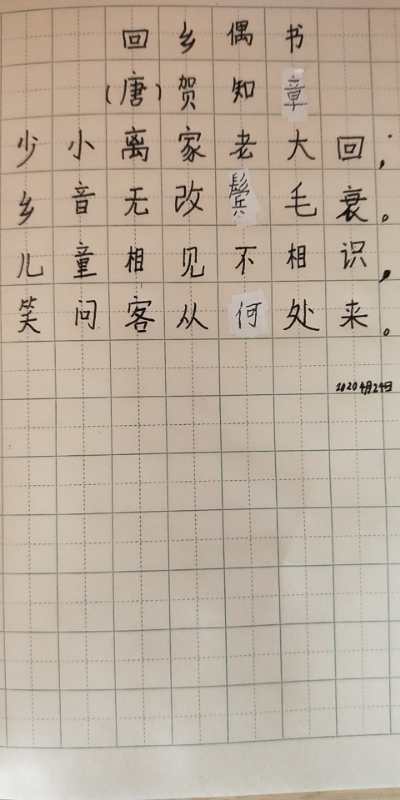 回乡偶书
(唐)贺知章
少小离家老大回，
乡音无改鬓毛衰。
儿童相见不相识，
笑问客从何处来。
2020 4月24日